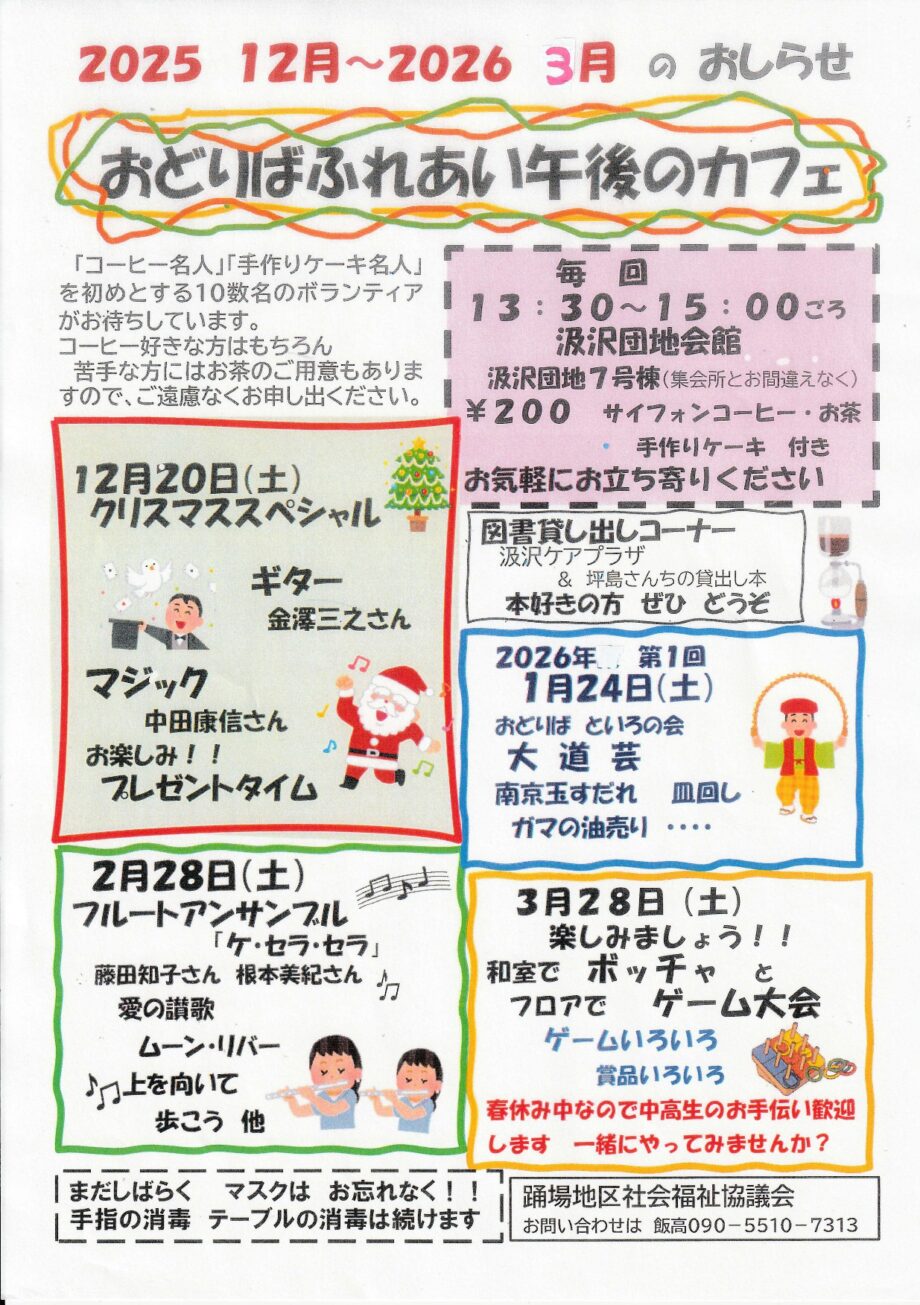 2025 12月～2026 3月 の おしらせ
おどりばふれあい午後のカフェ
「コーヒー名人」「手作りケーキ名人」
を初めとする10数名のボランティア
がお待ちしています。
コーヒー好きな方はもちろん
苦手な方にはお茶のご用意もありま
すので、ご遠慮なくお申し出ください。
毎 回
13：30～15：00ごろ
汲沢団地会館
汲沢団地7号棟（集会所とお間違えなく）
￥200 サイフォンコーヒー・お茶
手作りケーキ 付き
お気軽にお立ち寄りください
12月20日（土）
クリスマススペシャル
ギター
金澤三之さん
マジック
中田康信さん
お楽しみ！！
プレゼントタイム
図書貸し出しコーナー
汲沢ケアプラザ
& 坪島さんちの貸出し本
本好きの方 ぜひ どうぞ
2026年 第1回
1月24日（土）
おどりば といろの会
大 道 芸
南京玉すだれ 皿回し
ガマの油売り ‥‥
2月28日（土）
フルートアンサンブル
「ケ・セラ・セラ」
藤田知子さん 根本美紀さん
愛の讃歌
ムーン・リバー
上を向いて
歩こう 他
3月28日（土）
楽しみましょう！！
和室で ボッチャ と
フロアで ゲーム大会
ゲームいろいろ
賞品いろいろ
春休み中なので中高生のお手伝い歓迎
します 一緒にやってみませんか？
まだしばらく マスクは お忘れなく！！
手指の消毒 テーブルの消毒は続けます
踊場地区社会福祉協議会
お問い合わせは 飯高090－5510－7313